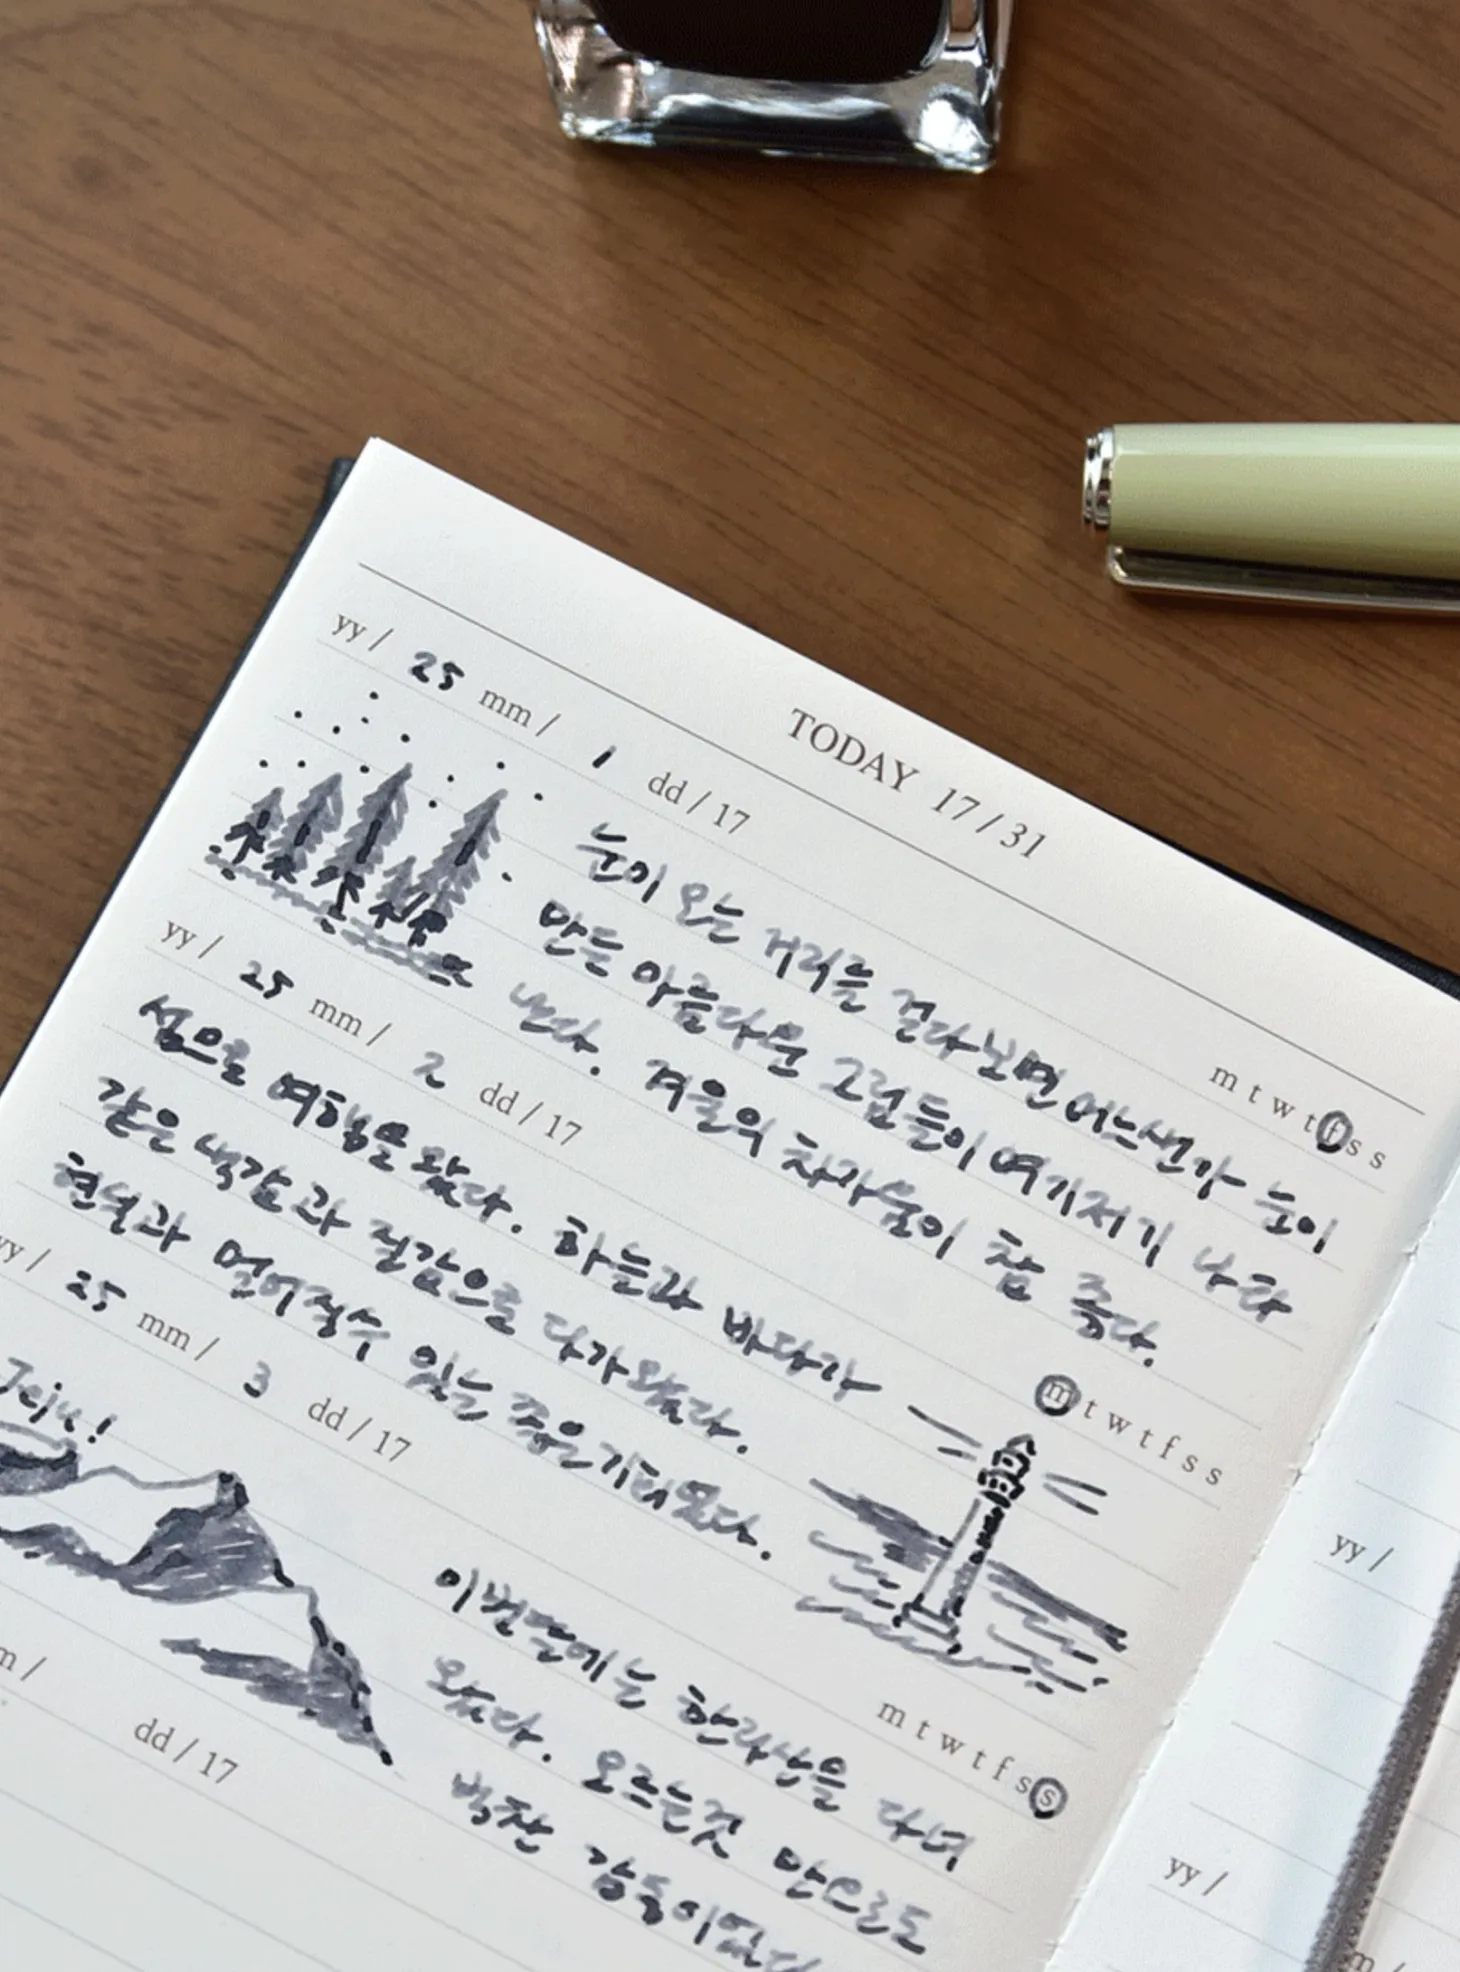 TODAY 17/31
yy / 25 mm / 1 dd / 17
m t w t f s s
눈이 오는 거리를 걷다보면 어느샌가 눈이
만든 아름다운 그림들이 여기저기 나타
난다. 겨울의 차가움이 참 좋다.
yy / 25 mm / 2 dd / 17
m t w t f s s
섬으로 여행을 왔다. 하늘과 바다가
같은 색감과 질감으로 다가왔다.
현실과 멀어질수 있는 좋은 기회였다.
yy / 25 mm / 3 dd / 17
m t w t f s s
Jeju!
이번달에는 한라산을 다녀
왔다. 오르는것 만으로도
벅찬 감동이었다
m /
dd / 17
yy /
yy /
m /